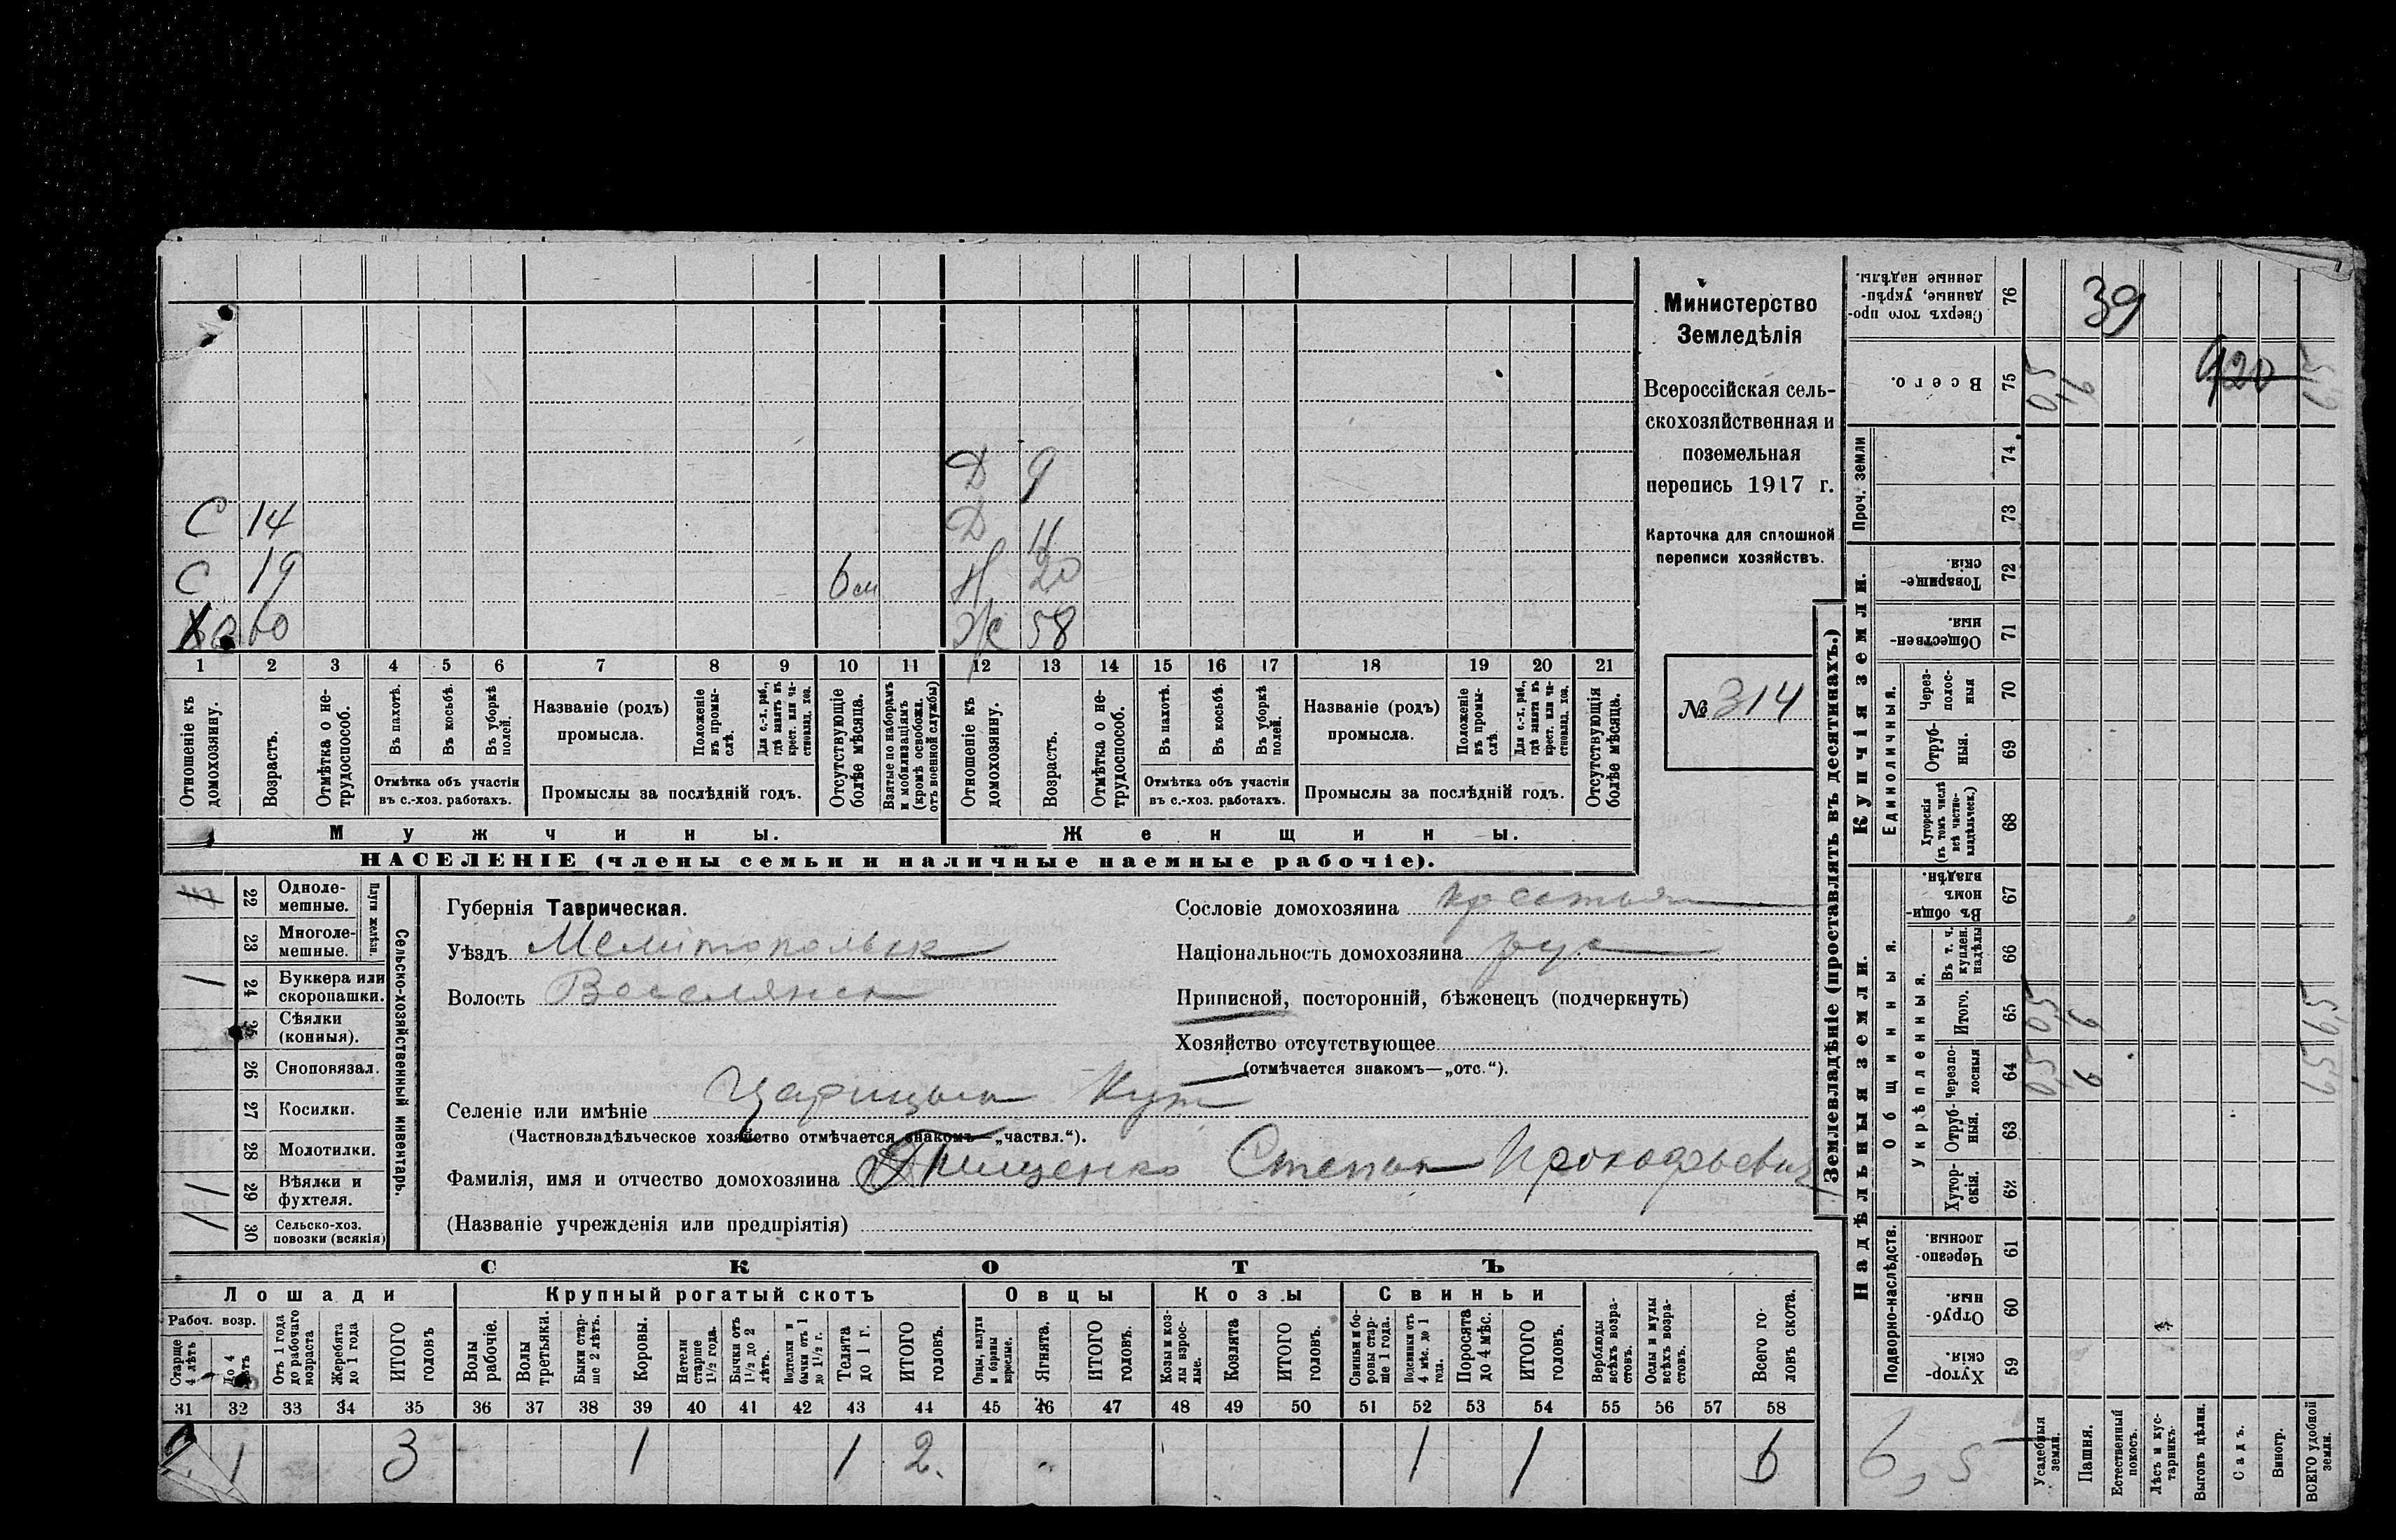 Министерство
Земледѣлія
Всероссійская сель-
скохозяйственная и
поземельная
перепись 1917 г.
Карточка для сплошной
переписи хозяйствъ.
№ 314
Д 9
С 14 Д 11
С 19 6 м Н 20
60 Ж 58
1 2 3 4 5 6 7 8 9 10 11 12 13 14 15 16 17 18 19 20 21
Отношеніе къ домохозяину.
Возрастъ.
Отмѣтка о не-трудоспособ.
Въ пахотѣ.
Въ косьбѣ.
Въ уборкѣ полей.
Отмѣтка объ участіи
въ с.-хоз. работахъ.
Названіе (родъ)
промысла.
Положеніе въ промы-слѣ.
Для с.-х. раб., гдѣ занятъ въ крест. или ча-стновлад. хоз.
Промыслы за послѣдній годъ.
Отсутствующіе болѣе мѣсяца.
Взятые по наборамъ и мобилизаціямъ (кромѣ освобожд. отъ военной службы)
Отношеніе къ домохозяину.
Возрастъ.
Отмѣтка о не-трудоспособ.
Въ пахотѣ.
Въ косьбѣ.
Въ уборкѣ полей.
Отмѣтка объ участіи
въ с.-хоз. работахъ.
Названіе (родъ)
промысла.
Положеніе въ промы-слѣ.
Для с.-х. раб., гдѣ занята въ крест. или ча-стновлад. хоз.
Промыслы за послѣдній годъ.
Отсутствующія болѣе мѣсяца.
Мужчины. Женщины.
НАСЕЛЕНІЕ (члены семьи и наличные наемные рабочіе).
Сельско-хозяйственный инвентарь.
Плуги желѣзн.
22 Одноле-мешные.
23 Многоле-мешные.
24 Буккера или скоропашки.
25 Сѣялки (конныя).
26 Сноповязал.
27 Косилки.
28 Молотилки.
29 Вѣялки и фухтеля.
30 Сельско-хоз. повозки (всякія)
Губернія Таврическая.
Уѣздъ Мелитопольск
Волость Веселянск
Сословіе домохозяина крестьян
Національность домохозяина рус
Приписной, посторонній, бѣженецъ (подчеркнуть)
Хозяйство отсутствующее
(отмѣчается знакомъ—„отс.“).
Селеніе или имѣніе Царицын Кут
(Частновладѣльческое хозяйство отмѣчается знакомъ—„частвл.“).
Фамилія, имя и отчество домохозяина Тищенко Степан Прокофьевич
(Названіе учрежденія или предпріятія)
СКОТЪ
Лошади Крупный рогатый скотъ Овцы Козы Свиньи
Рабоч. возр.
Старше 4 лѣтъ
До 4 лѣтъ
Отъ 1 года до рабочаго возраста
Жеребята до 1 года
ИТОГО головъ
Волы рабочіе.
Волы третьяки.
Быки стар-ше 2 лѣтъ.
Коровы.
Нетели старше 1½ года.
Бычки отъ 1½ до 2 лѣтъ.
Подтелки и бычки отъ 1 до 1½ г.
Телята до 1 г.
ИТОГО головъ.
Овцы, валухи и бараны взрослые.
Ягнята.
ИТОГО головъ.
Козы и коз-лы взрос-лые.
Козлята
ИТОГО головъ.
Свиньи и бо-ровы стар-ше 1 года.
Подсвинки отъ 4 мѣс. до 1 года.
Поросята до 4 мѣс.
ИТОГО головъ.
Верблюды всѣхъ возра-стовъ.
Ослы и мулы всѣхъ возра-стовъ.
Всего го-ловъ скота.
31 32 33 34 35 36 37 38 39 40 41 42 43 44 45 46 47 48 49 50 51 52 53 54 55 56 57 58
1 3 1 1 2. 1 1 6
Землевладѣніе (проставлять въ десятинахъ.)
Купчія земли.
Надѣльныя земли.
Сверхъ того про-данные, укрѣп-ленные надѣлы. 76 39
Всего. 75 50 9 920 59
Проч. земли 74 73
Товарище-скія. 72
Обществен-ныя. 71
Единоличныя.
Через-полос-ныя 70
Отруб-ныя. 69
Хуторскія (въ томъ числѣ всѣ частно-владѣльческ.) 68
Общинныя.
Въ общин-номъ владѣн. 67
Укрѣпленныя.
Въ т. ч. куплен. надѣлы 66
Итого. 65 50 9 59
Черезпо-лосныя 64 50 9 59
Отруб-ныя. 63
Хутор-скія. 62
Подворно-наслѣдств.
Черезпо-лосныя. 61
Отруб-ныя. 60
Хутор-скія. 59
6,5
Усадебныя земли.
Пашня.
Естественный покосъ.
Лѣсъ и кус-тарникъ.
Выгонъ цѣлин.
Садъ.
Виногр.
ВСЕГО удобной земли.